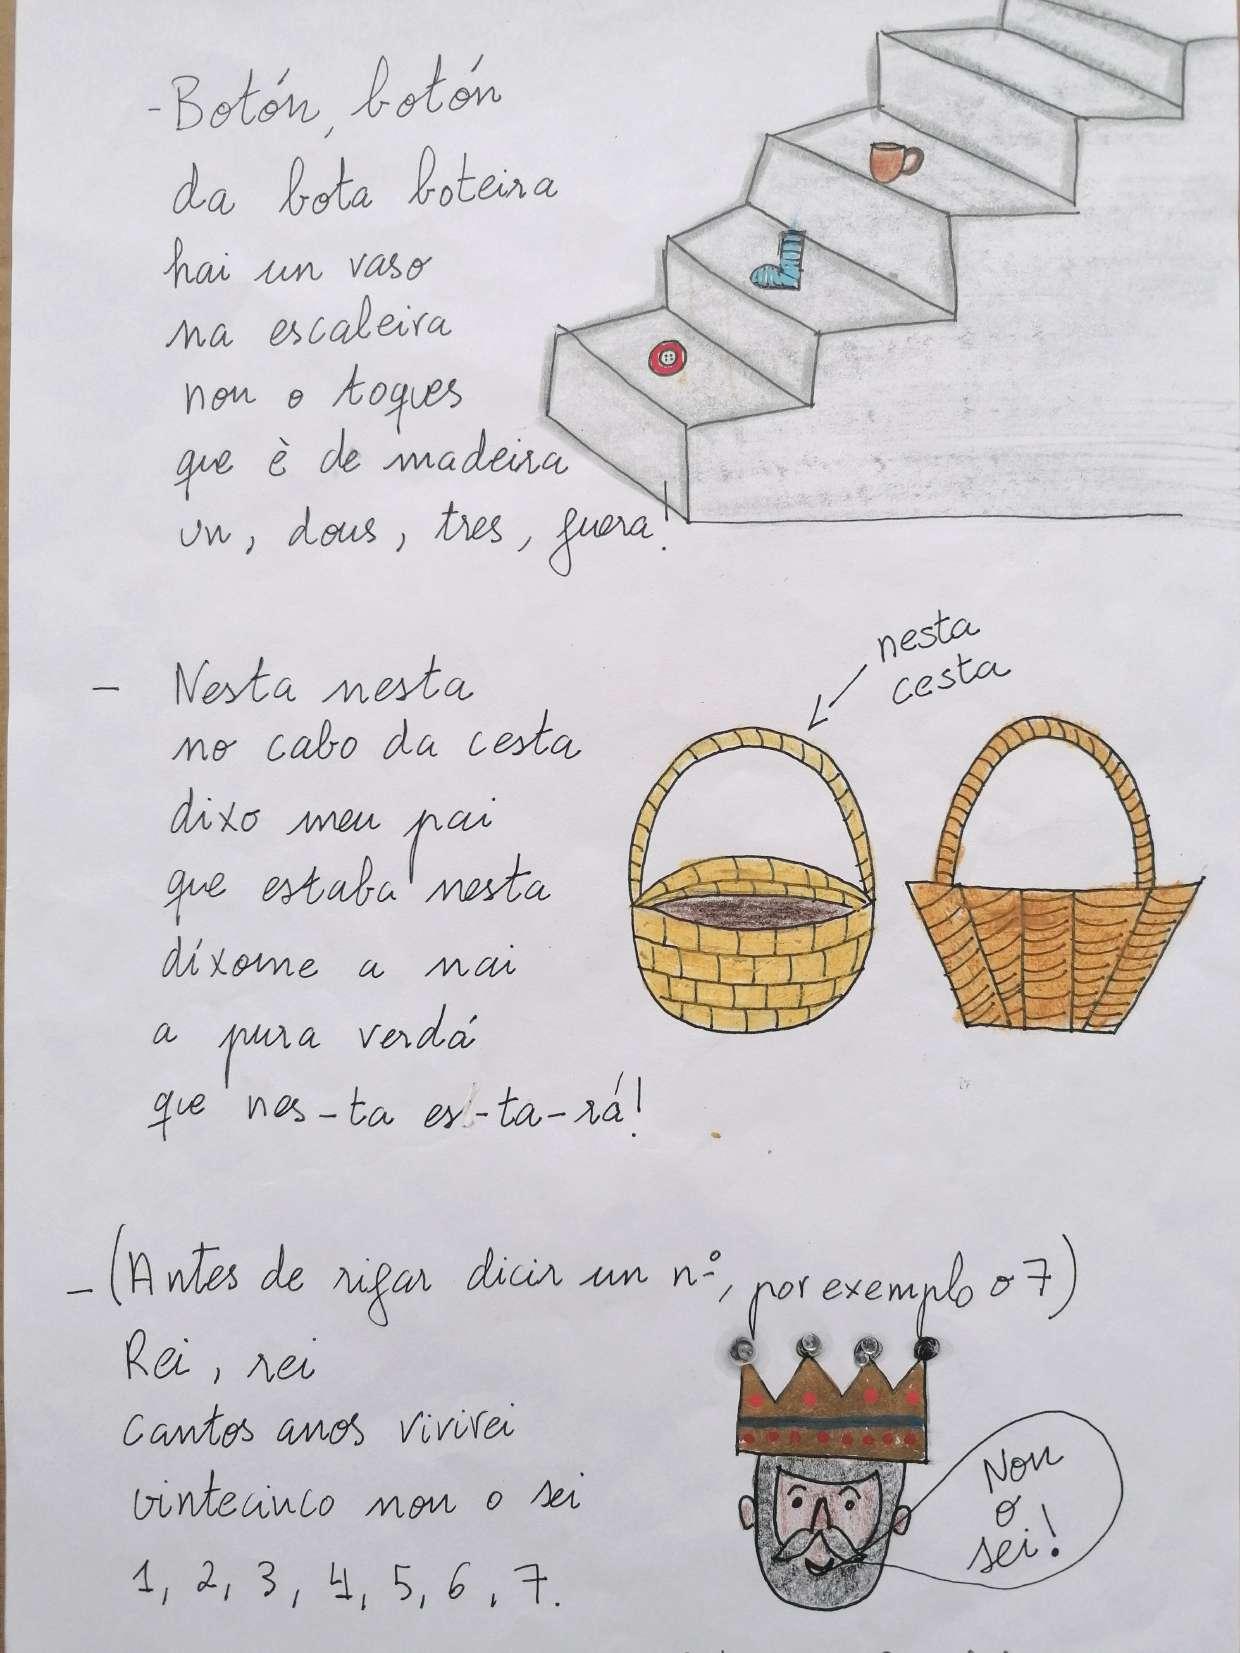 - Botón, botón
da bota boteira
hai un vaso
na escaleira
non o toques
que è de madeira
un, dous, tres, fuera!
- Nesta nesta
no cabo da cesta
dixo meu pai
que estaba nesta
díxome a nai
a pura verdá
que nes-ta es-ta-rá!
nesta
cesta
- (Antes de rifar dicir un nº, por exemplo o 7)
Rei, rei
cantos anos vivirei
vintecinco non o sei
1, 2, 3, 4, 5, 6, 7.
Non
o
sei!